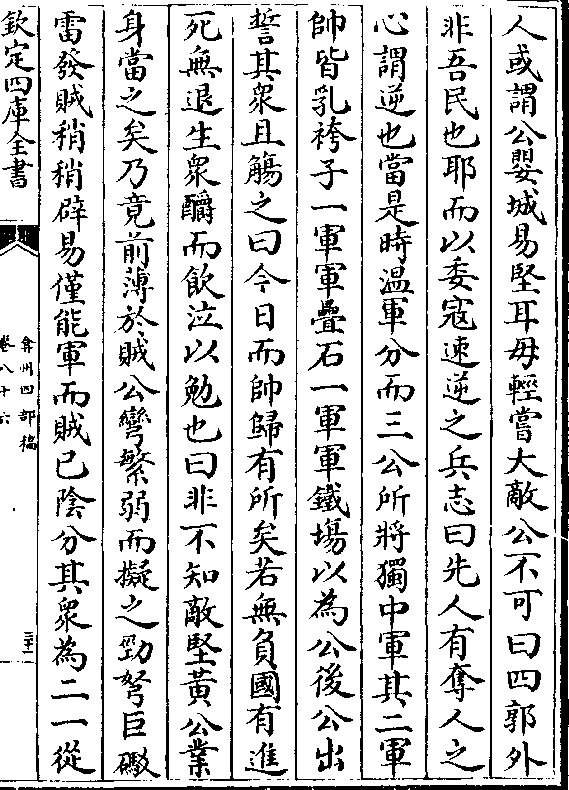 人或謂公嬰城易堅耳毋輕嘗大敵公不可曰四郭外
非吾民也耶而以委寇速逆之兵志曰先人有奪人之
心謂逆也當是時温軍分而三公所將獨中軍其二軍
帥皆乳袴子一軍軍疊石一軍軍鐵場以為公後公出
誓其衆且觴之曰今日而帥歸有所矣若無負國有進
死無退生衆釂而飲泣以勉也曰非不知敵堅黃公業
身當之矣乃竟前薄於賊公彎繁弱而擬之勁弩巨礮
雷發賊稍稍辟易僅能軍而賊已陰分其衆為二一從
欽定四庫全書
弇州四部稿
卷八十六